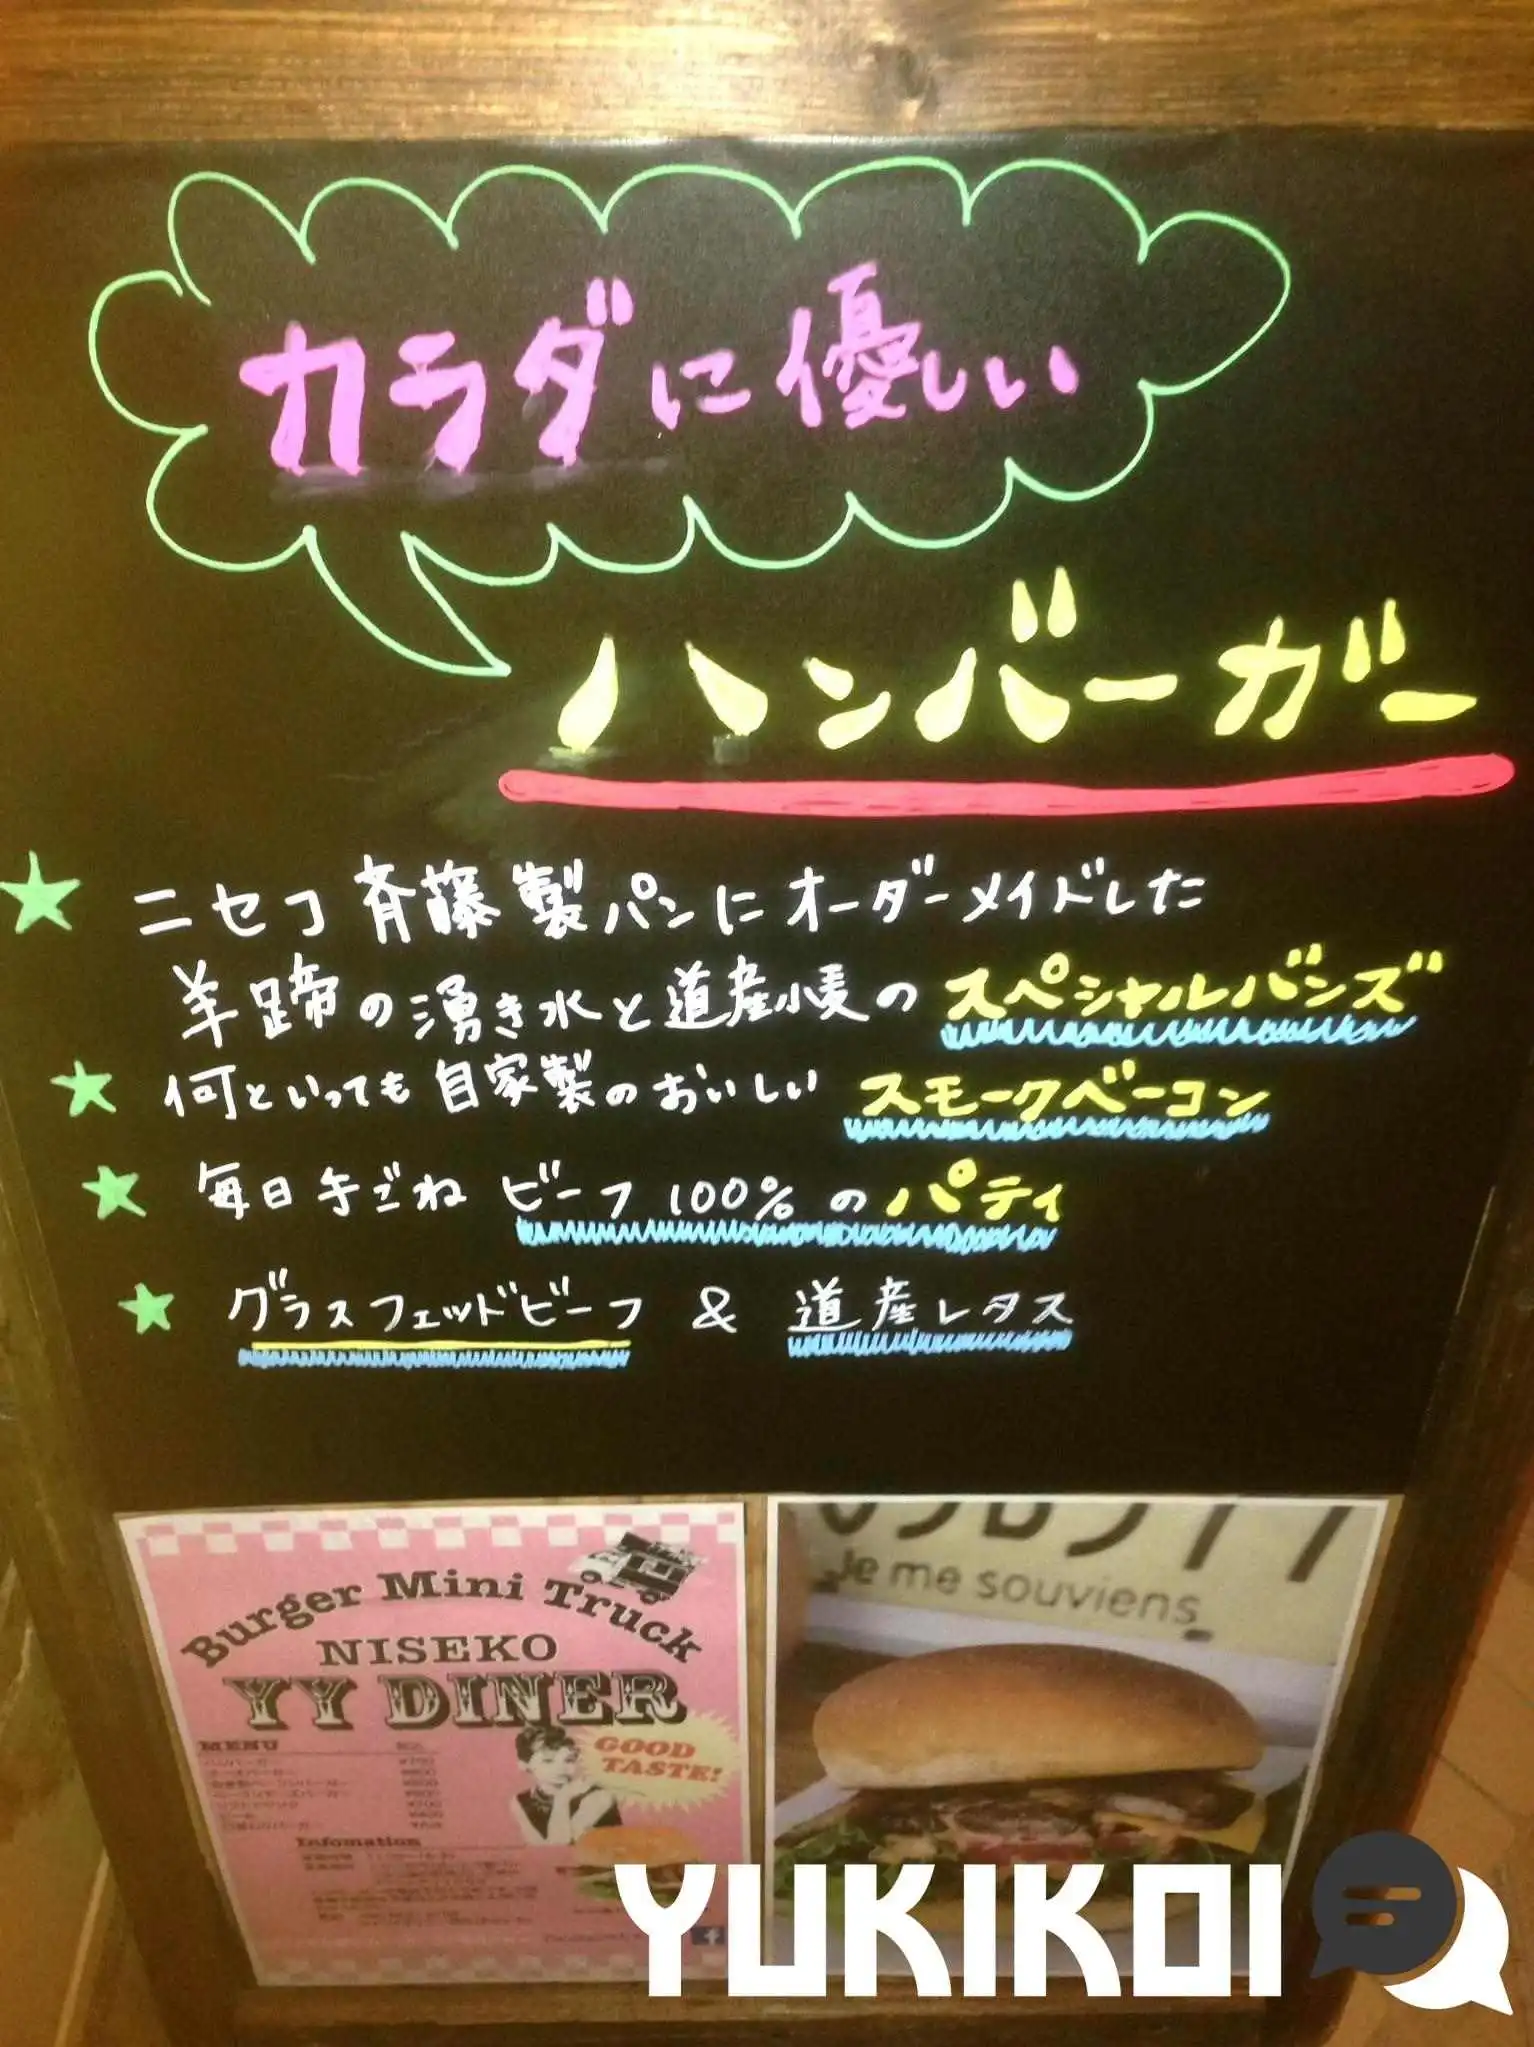 カラダに優しい
ハンバーガー
★ ニセコ斉藤製パンにオーダーメイドした
羊蹄の湧き水と道産小麦のスペシャルバンズ
★ 何といっても自家製のおいしいスモークベーコン
★ 毎日手ごね ビーフ100%のパティ
★ グラスフェッドビーフ & 道産レタス
Burger Mini Truck
NISEKO
YY DINER
MENU
GOOD
TASTE!
Infomation
Je me souviens
YUKIKOI